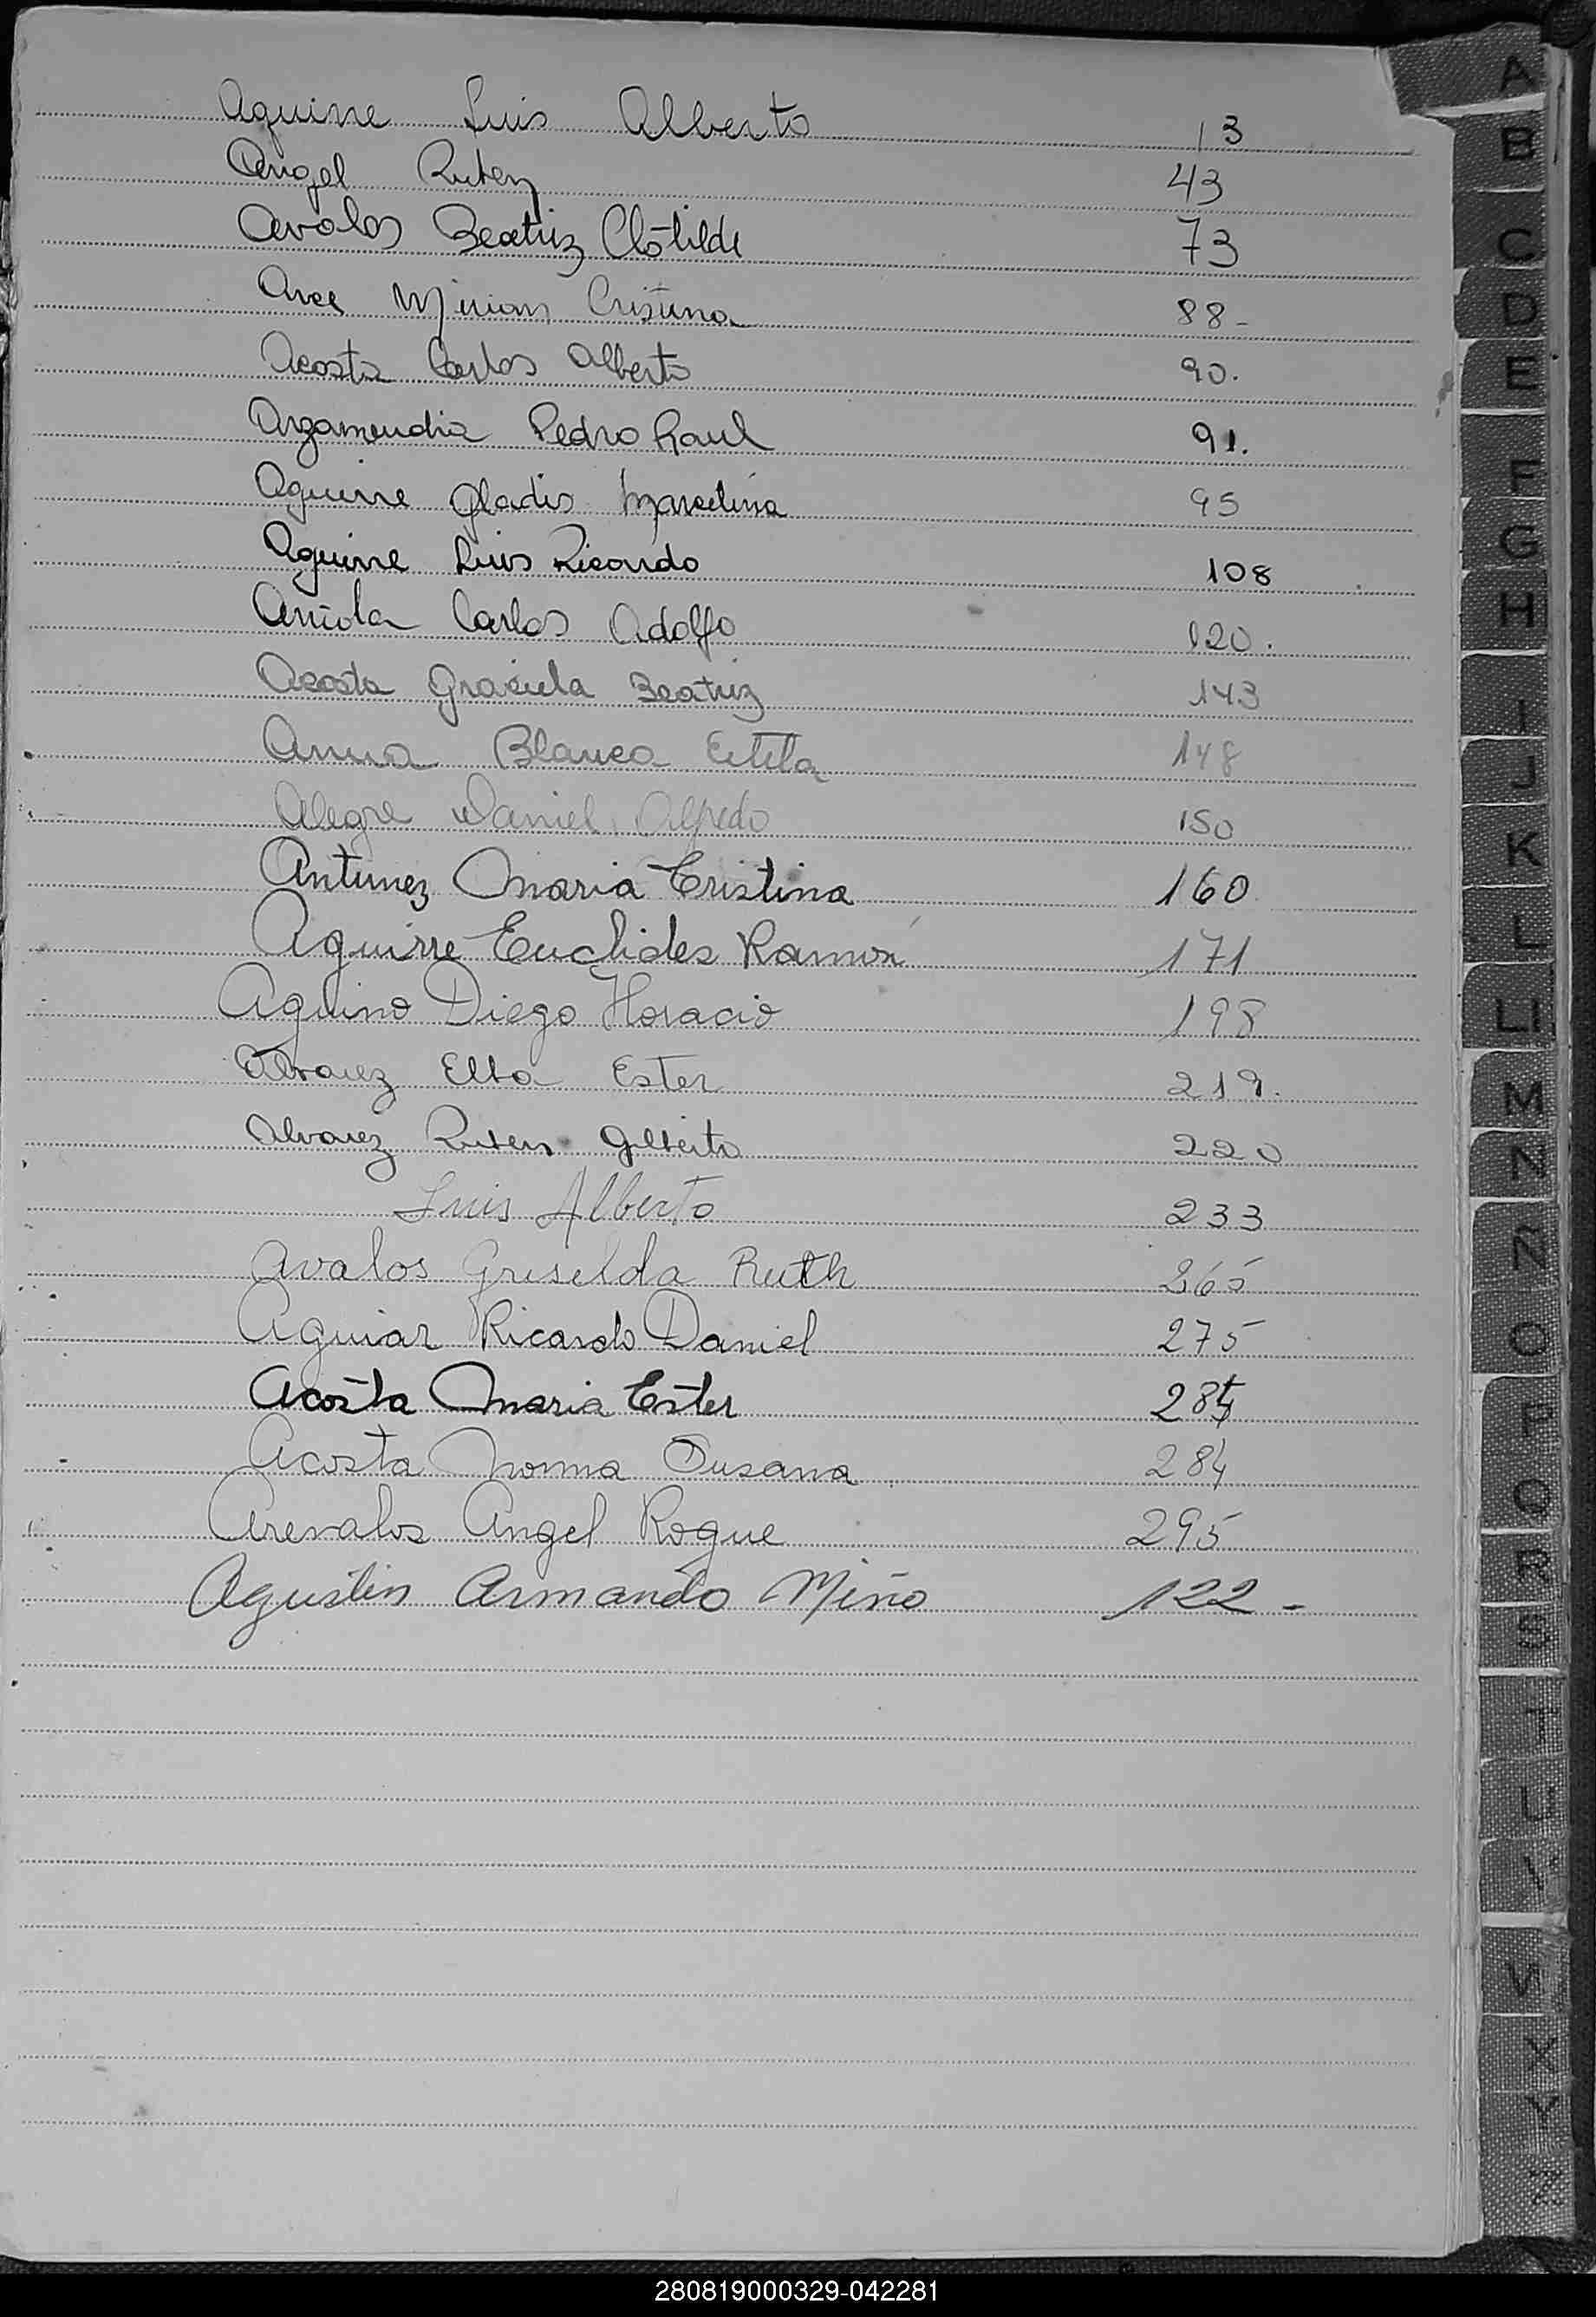 Aguirre Luis Alberto 13
Angel Ruben 43
Avalos Beatriz Clotilde 73
Arce Mirian Cristina 88-
Acosta Carlos Alberto 90.
Argamendia Pedro Raul 91.
Aguirre Gladis Marcelina 95
Aguirre Luis Ricardo 108
Arriola Carlos Adolfo 120.
Acosta Graciela Beatriz 143
Blanca Estela 148
Alegre Daniel Alfredo 150
Antunez Maria Cristina 160
Aguirre Euclides Ramón 171
Aquino Diego Horacio 198
Alvarez Elba Ester 219.
Alvarez Ruben Gilberto 220
Luis Alberto 233
Avalos Griselda Ruth 265
Aguiar Ricardo Daniel 275
Acosta Maria Ester
Acosta Norma Susana 284
Arevalos Angel Roque 295
Agustin Armando Miño 122-
A
B
C
D
E
F
G
H
I
J
K
L
Ll
M
N
Ñ
O
P
Q
R
S
T
U
V
W
X
Y
Z
280819000329-042281